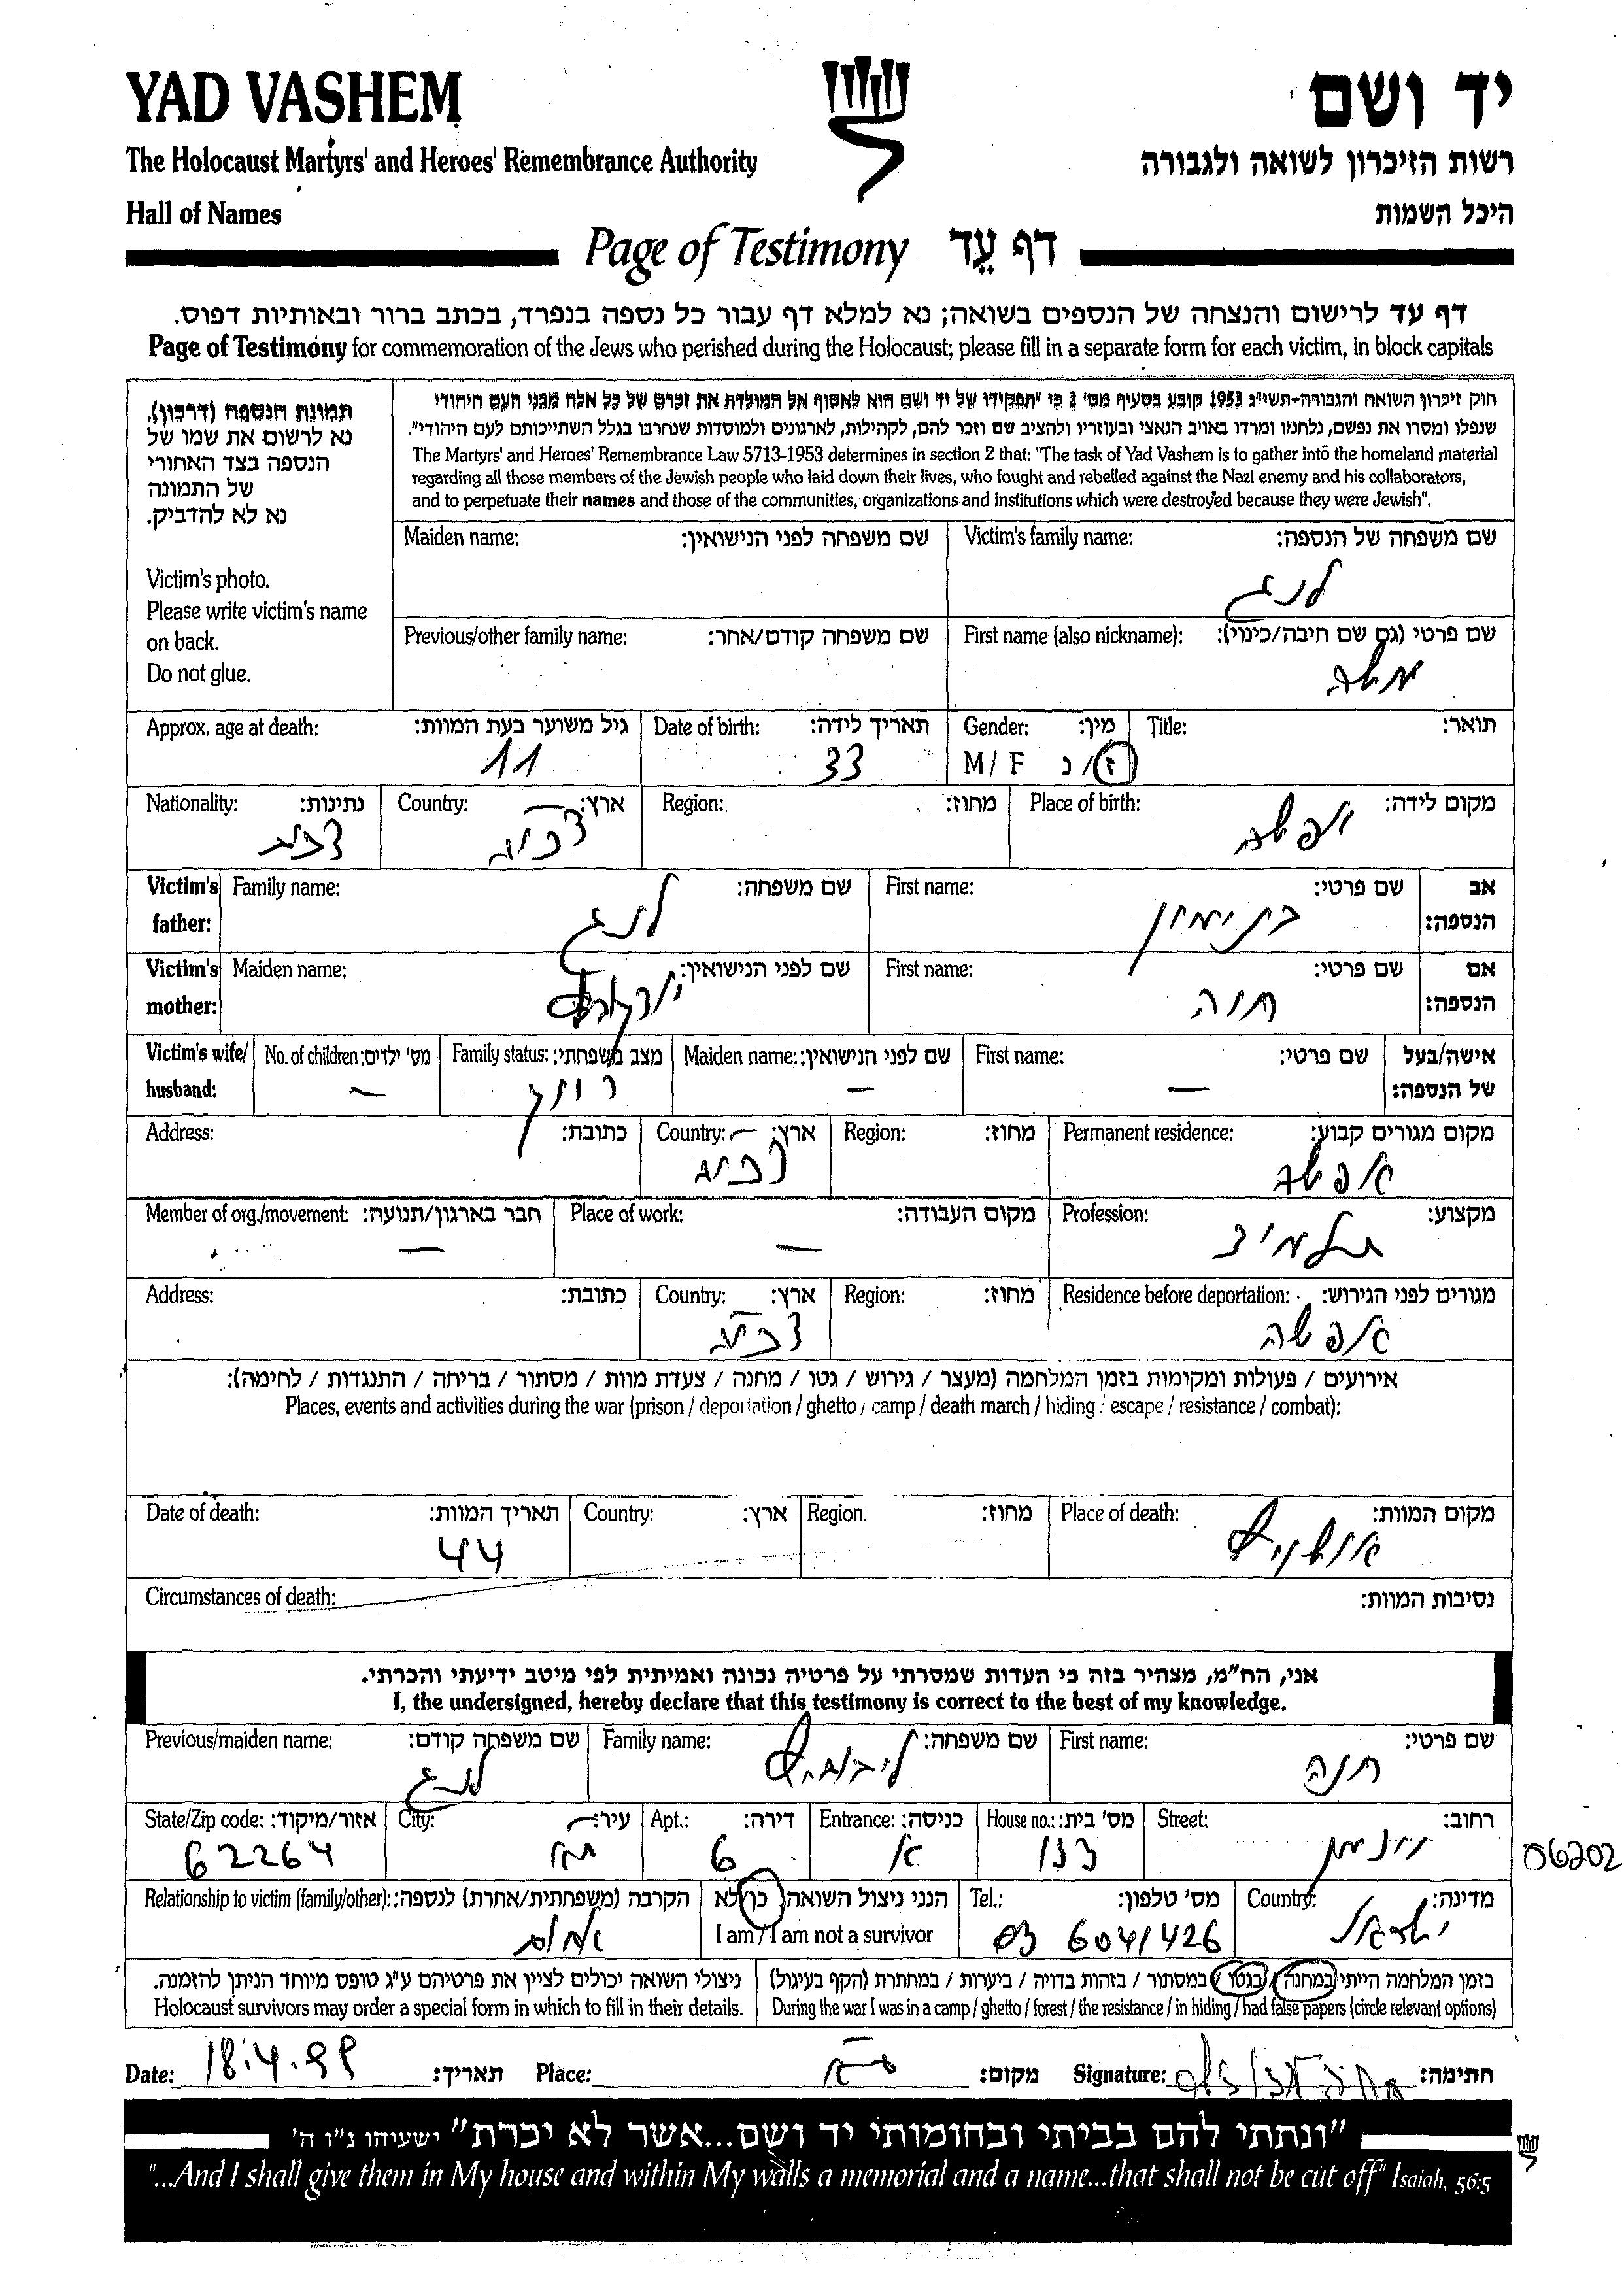 YAD VASHEM
יד ושם
The Holocaust Martyrs' and Heroes' Remembrance Authority
רשות הזיכרון לשואה ולגבורה
Hall of Names
היכל השמות
Page of Testimony דף עֵד
דף עד לרישום והנצחה של הנספים בשואה; נא למלא דף עבור כל נספה בנפרד, בכתב ברור ובאותיות דפוס.
Page of Testimony for commemoration of the Jews who perished during the Holocaust; please fill in a separate form for each victim, in block capitals
תמונת הנספה (דרכון).
נא לרשום את שמו של
הנספה בצד האחורי
של התמונה
נא לא להדביק.
Victim's photo.
Please write victim's name
on back.
Do not glue.
חוק זיכרון השואה והגבורה-תשי"ג 1953 קובע בסעיף מס' 2 כי "תפקידו של יד ושם הוא לאסוף אל המולדת את זכרם של כל אלה מבני העם היהודי
שנפלו ומסרו את נפשם, נלחמו ומרדו באויב הנאצי ובעוזריו ולהציב שם וזכר להם, לקהילות, לארגונים ולמוסדות שנחרבו בגלל השתייכותם לעם היהודי".
The Martyrs' and Heroes' Remembrance Law 5713-1953 determines in section 2 that: "The task of Yad Vashem is to gather into the homeland material
regarding all those members of the Jewish people who laid down their lives, who fought and rebelled against the Nazi enemy and his collaborators,
and to perpetuate their names and those of the communities, organizations and institutions which were destroyed because they were Jewish".
Maiden name: שם משפחה לפני הנישואין:
Victim's family name: שם משפחה של הנספה:
לנג
Previous/other family name: שם משפחה קודם/אחר:
First name (also nickname): שם פרטי (גם שם חיבה/כינוי):
משה
Approx. age at death: גיל משוער בעת המוות:
11
Date of birth: תאריך לידה:
33
Gender: מין:
M / F ז/נ
Title: תואר:
Nationality: נתינות:
Country: ארץ:
Region: מחוז:
Place of birth: מקום לידה:
אפשה
Victim's father: Family name: שם משפחה:
לנג
First name: שם פרטי:
בנימין
אב הנספה:
Victim's mother: Maiden name: שם לפני הנישואין:
First name: שם פרטי:
חנה
אם הנספה:
Victim's wife/ husband: No. of children: מס' ילדים:
–
Family status: מצב משפחתי:
רווק
Maiden name: שם לפני הנישואין:
–
First name: שם פרטי:
–
אישה/בעל של הנספה:
Address: כתובת:
Country: ארץ:
Region: מחוז:
Permanent residence: מקום מגורים קבוע:
אפשה
Member of org./movement: חבר בארגון/תנועה:
–
Place of work: מקום העבודה:
–
Profession: מקצוע:
תלמיד
Address: כתובת:
Country: ארץ:
Region: מחוז:
Residence before deportation: מגורים לפני הגירוש:
אפשה
אירועים / פעולות ומקומות בזמן המלחמה (מעצר / גירוש / גטו / מחנה / צעדת מוות / מסתור / בריחה / התנגדות / לחימה):
Places, events and activities during the war (prison / deportation / ghetto / camp / death march / hiding / escape / resistance / combat):
Date of death: תאריך המוות:
44
Country: ארץ:
Region: מחוז:
Place of death: מקום המוות:
אושויץ
Circumstances of death: נסיבות המוות:
אני, הח"מ, מצהיר בזה כי העדות שמסרתי על פרטיה נכונה ואמיתית לפי מיטב ידיעתי והכרתי.
I, the undersigned, hereby declare that this testimony is correct to the best of my knowledge.
Previous/maiden name: שם משפחה קודם:
לנג
Family name: שם משפחה:
First name: שם פרטי:
חנה
State/Zip code: אזור/מיקוד:
62264
City: עיר:
ת"א
Apt.: דירה:
6
Entrance: כניסה:
א
House no.: מס' בית:
Street: רחוב:
ויצמן
06202
Relationship to victim (family/other): הקרבה (משפחתית/אחרת) לנספה:
אחות
הנני ניצול השואה: כן/לא
I am / I am not a survivor
Tel.: מס' טלפון:
03 6041426
Country: מדינה:
ישראל
ניצולי השואה יכולים לציין את פרטיהם ע"ג טופס מיוחד הניתן להזמנה.
Holocaust survivors may order a special form in which to fill in their details.
בזמן המלחמה הייתי במחנה / בגטו / במסתור / בזהות בדויה / ביערות / במחתרת (הקף בעיגול)
During the war I was in a camp / ghetto / forest / the resistance / in hiding / had false papers (circle relevant options)
Date: 18.4.99 תאריך:
Place: ת"א מקום:
Signature: חתימה:
"ונתתי להם בביתי ובחומותי יד ושם...אשר לא יכרת" ישעיהו נ"ו ה'
"...And I shall give them in My house and within My walls a memorial and a name...that shall not be cut off" Isaiah, 56:5